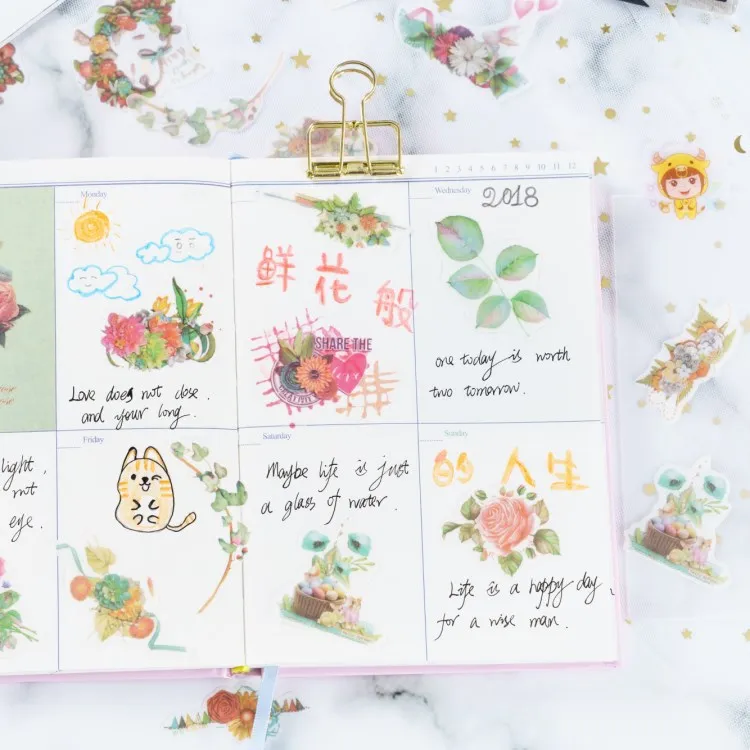 1 2 3 4 5 6 7 8 9 10 11 12
Monday
Love does not close
and your long.
鲜花般
SHARE THE
Wednesday
2018
one today is worth
two tomorrow.
light,
not
eye.
Friday
Saturday
Maybe life is just
a glass of water.
Sunday
的人生
Life is a happy day,
for a wise man.